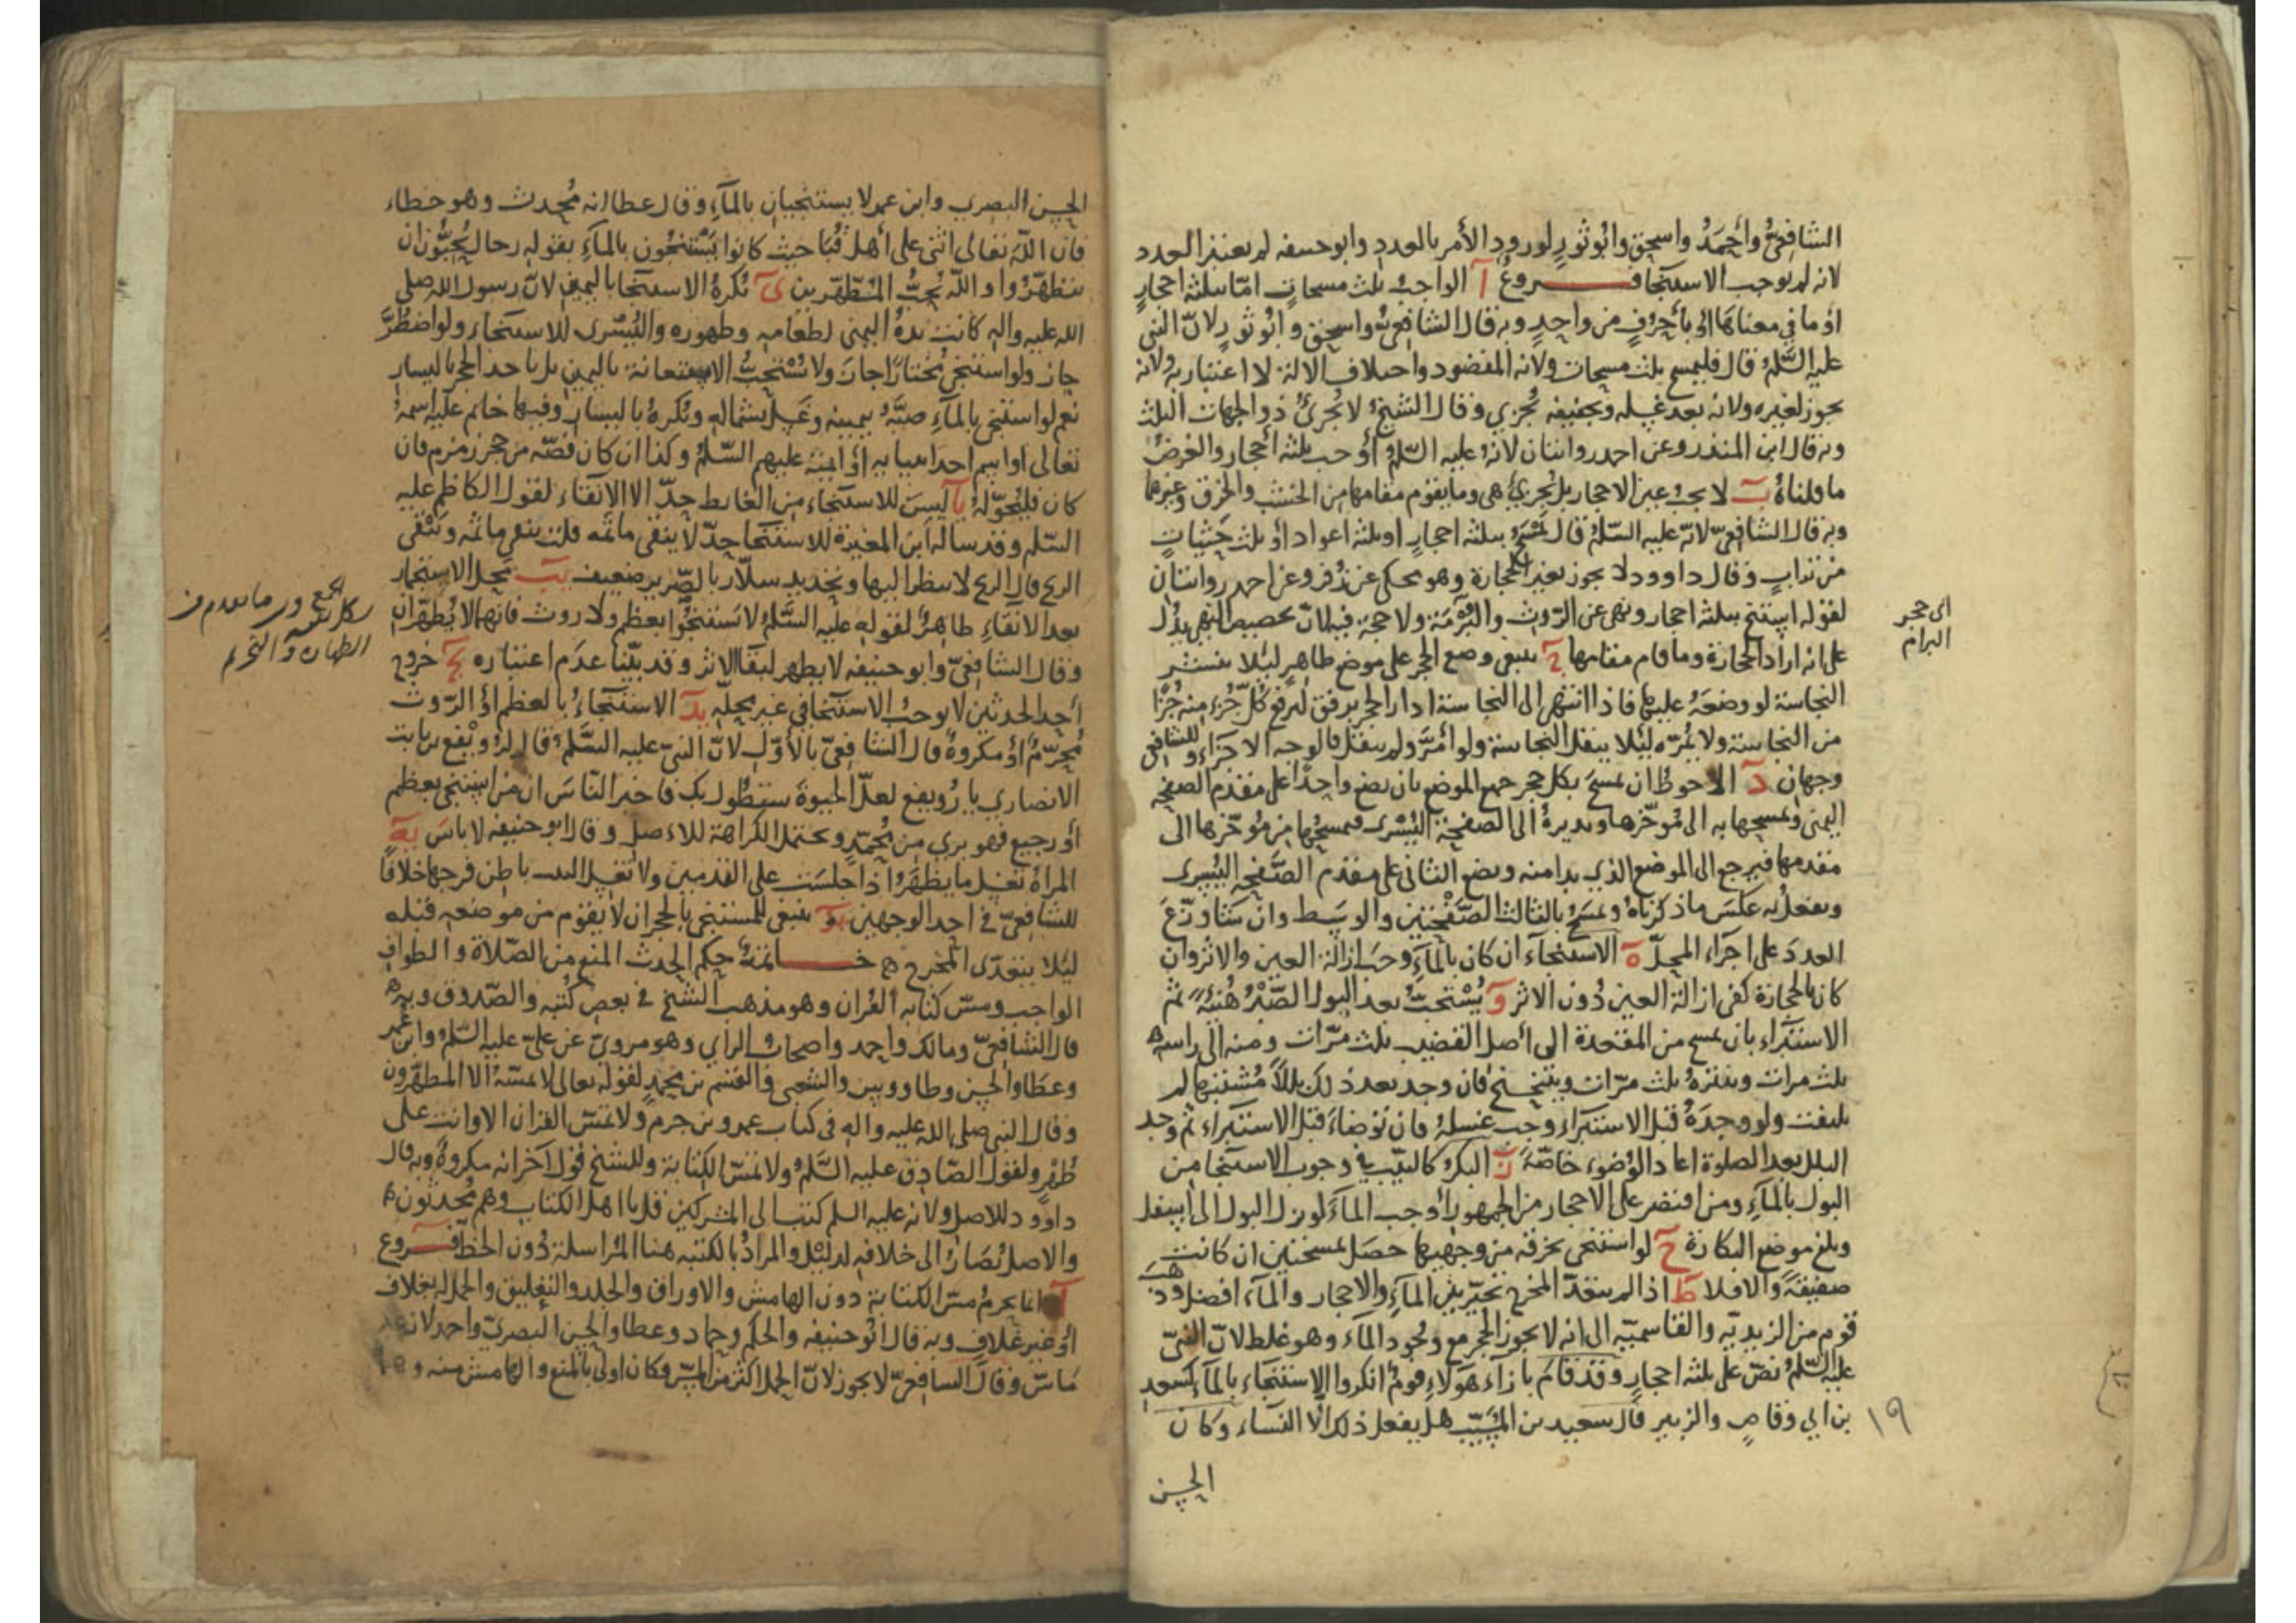 الشافعيُّ وأحمدُ واسحق وابُوثورٍ لورودِ الأمر بالعددِ وابوحنيفه لم يعتبر العدد
لانه لم يوجب الاستنجا فــــروعٌ آ الواجبُ ثلث مسحاتٍ امّا بثلثة احجارٍ
اوما في معناها او بأحرُفٍ من واحدٍ وبه قال الشافعيّ واسحق وابُوثورٍ لانّ النبى
عليه السَّلمُ قال فليمسح ثلث مسحات ولانه المقصود واختلاف الالة لا اعتبار به ولانه
يجوز لغيره ولانه بعد غسله وتجفيفه يُجزي وقال الشيخُ لا يُجزئُ ذو الجهات الثلث
وبه قال ابن المنذر وعن احمد روايتان لانهُ عليه السّلمُ أوجب ثلثة أحجار والغرضُ
ما قلناهُ بَ لا يجبُ عين الاحجار بل يُجزيُ هى وما يقوم مقامها من الخشب والخرق وغيرها
وبه قال الشافعىّ لانّه عليه السّلمُ قال يمْسَحُ بثلثة احجارٍ او بثلثة اعواد أو ثلث حَثَياتٍ
من ترابٍ وقال داوود لا يجوز بغير الحجارة وهو محكى عن زُفر وعن احمد روايتان
لقوله استنج بثلثة احجار ونهى عن الرّوث والرُّمّة ولا حجة فيه لانّ تخصيص النهى يدُل
على انه اراد الحجارة وما قام مقامها جَ ينبغى وضع الحجر على موضع طاهرٍ لئلا ينتشر
النجاسة لو وضعَهُ عليها فاذا انتهى الى النجاسة ادار الحجر برفق ليرفع كُلّ جُزءٍ منه جُزْا
من النجاسة ولا يُمرّه لئلا ينقل النجاسة ولو أمرَّ ولم ينقل فالوجه الاجزاء وللشافعى
وجهان دَ الاحوطُ ان يمسحَ بكل حجر جميع الموضع بان يضع واحدًا على مقدم الصفحه
اليمنى ويمسحها به الى مُؤخّرها ويديرهُ الى الصفحة اليُسْرى فيمسحُها من مُؤخّرها الى
مقدمها فيرجع الى الموضع الذى بدا منه ويضع الثانى على مقدم الصَّفحه اليُسرى
ويفعل به عكسَ ما ذكرناهُ ويمسَحُ بالثالث الصّفْحتين والوسَط وان شَا وزّعَ
العددَ على اجزاء المحلّ هَ الاستنجاء ان كان بالماءِ وجَبَ ازالة العين والاثر وان
كان بالحجارة كفى ازالة العين دُون الاثر وَ يُسْتحبُّ بعد البول الصَّبْرُ هُنيْئةً ثم
الاستبراء بان يمسح من المقعدة الى أصل القضيب ثلث مرّات ومنه الى راسه
ثلث مرات وينترهُ ثلث مرّات ويتنحنح فان وجد بعد ذلك بللاً مُشتبهًا لم
يلتفت ولو وجدَهُ قبل الاستبراء وجب غسلهُ فان توضاءَ قبل الاستبراء ثم وجد
البلل بعد الصلوة اعاد الوُضوء خاصّةً زَ البكرُ كالثيّب فى وجوب الاستنجا من
البول بالماءِ ومن اقتصر على الاحجار من الجمهور أوجب الماءَ لو نزل البول الى اسفل
وبلغ موضع البكارة حَ لو استنجى بخرقه من وجهيها حصَل بمسحتين ان كانت
صفيقةً والا فلا طَ اذا لم يتعدّ المخرج تخيّر بين الماءِ والاحجار والماء افضل وذهب
قوم من الزيديّه والقاسميّه الى انه لا يجوز الحجر مع وجُود الماء وهو غلط لانّ النبىّ
عليه السّلمُ نصّ على ثلثه احجارٍ وقد قامَ بازاء هَوُلاءِ قومٌ انكروا الاستنجاء بالماءِ كسَعد
بن ابي وقاصٍ والزبير قال سعيد بن المُسَيّب هل يفعل ذلك الّا النّساء وكان
١٩
الحسن
اى حجر
البرام
الحسن البصرى وابن عمر لا يستنجيان بالماءِ وقال عطا انه مُحدث وهو خطاء
فان اللّه تعالى اثنى على أهل قُبَا حيث كانوا يَسْتنجُون بالماءِ بقوله رجال يُحبُّون ان
يتطهّرُوا واللّه يُحبُّ المتطهّرين ىَ يُكرهُ الاستنجا باليمين لانّ رسول الله صلى
الله عليه واله كانت يدهُ اليمنى لطعامه وطهوره واليُسْرى للاستنجاء ولو اضطُرَّ
جاز ولو استنجى مُختارًا جازَ ولا تُسْتحبُّ الاستعانة باليمين بل ياخذ الحجر باليسار
نعم لو استنجى بالماءِ صبَّهُ بيمينه وغسل بشماله ويُكرهُ باليسار وفيها خاتم عليه اسمهُ
تعالى او اسم احد انبيا به أو أيمته عليهم السّلمُ وكذا ان كان فصّه من حجر زمزم فان
كان فليُحوّلهُ يآ ليسَ للاستنجاء من الغايط حدّ الا الإنقاء لقول الكاظم عليه
السّلم وقد ساله ابن المغيرة للاستنجا حدّ لا ينقى ما ثمّه قلت ينقى ما ثمّه وتبْقى
الريح قال الريح لا ينظر اليها وتحديد سلّار بالصّرير ضعيف يبَ محل الاستنجمار
بعد الانقاءِ طاهرٌ لقوله عليه السَّلمُ لا تَستنجُوا بعظم ولا روث فانهما لا يُطهّران
وقال الشافعىّ وابو حنيفه لا يطهر لبقا الاثر وقد بيّنا عدَم اعتباره يجَ خروج
أحد الحدثين لا يوجبُ الاستنجا فى غير محلّه يدَ الاستنجاءُ بالعظم اوْ الرّوث
مُحرّمٌ اوْ مكروهٌ قال الشافعىّ بالأوّل لانّ النبىّ عليه السَّلمُ قال لرُوَيْفع بن ثابت
الانصاري يا رُويفع لعلّ الحيوة ستطُول بك فاخبر النّاسَ ان من استنجى بعظم
أو رجيع فهو برى من مُحمّدٍ ويحتمل الكراهة للاصل وقال ابو حنيفه لا باسَ يهَ
المراةُ تغسل ما يظهَرُ اذا جلسَت على القدمين ولا تغسل الثيب باطن فرجها خلافًا
للشافعىّ فى احد الوجهين يوَ ينبغى للمستنجى بالحجر ان لا يقوم من موضعه قبله
لئلا يتعدّى المخرج ه خــــاتمةٌ حكم الحدث المنع من الصّلاة والطواف
الواجب ومسّ كتابه القُران وهو مذهب الشيخ فى بعض كُتبه والصّدوق وبه
قال الشافعىّ ومالك واحمد واصحاب الراي وهو مروىّ عن علىّ عليه السّلمُ وابن عُمر
وعطَا والحسن وطاووس والشعبى والقسم بن محمدٍ لقوله تعالى لا يمسّهُ الا المطهّرون
وقال النبى صلى الله عليه واله فى كتاب عمرو بن حزم ولا تمسّ القران الا وانت على
طُهْرٍ ولقول الصّادق عليه السَّلمُ ولا تمسّ الكتابة وللشيخ قولٌ آخر انه مكروهٌ وبه قال
داوود للاصل ولانه عليه السلم كتب الى المشركين قل يا اهل الكتاب وهم مُحدثُون ه
والاصل يُصَارُ الى خلافه لدليْل والمرادُ بالكتبه هنا المُراسلة دُون الخطّ فــروع
آ انما يحرمُ مسّ الكتابة دون الهامش والاوراق والجلد والتعليق والحمل بغلاف
أو غير غلافٍ وبه قال ابُو حنيفه والحكم وحماد وعطا والحسن البصرىّ واحمد لانه غير
مَاسّ وقال الشافعىّ لا يجوز لانّ الحمل اكثر من المسّ فكان اولى بالمنع والهامش منه و
الطهارة والتحريم